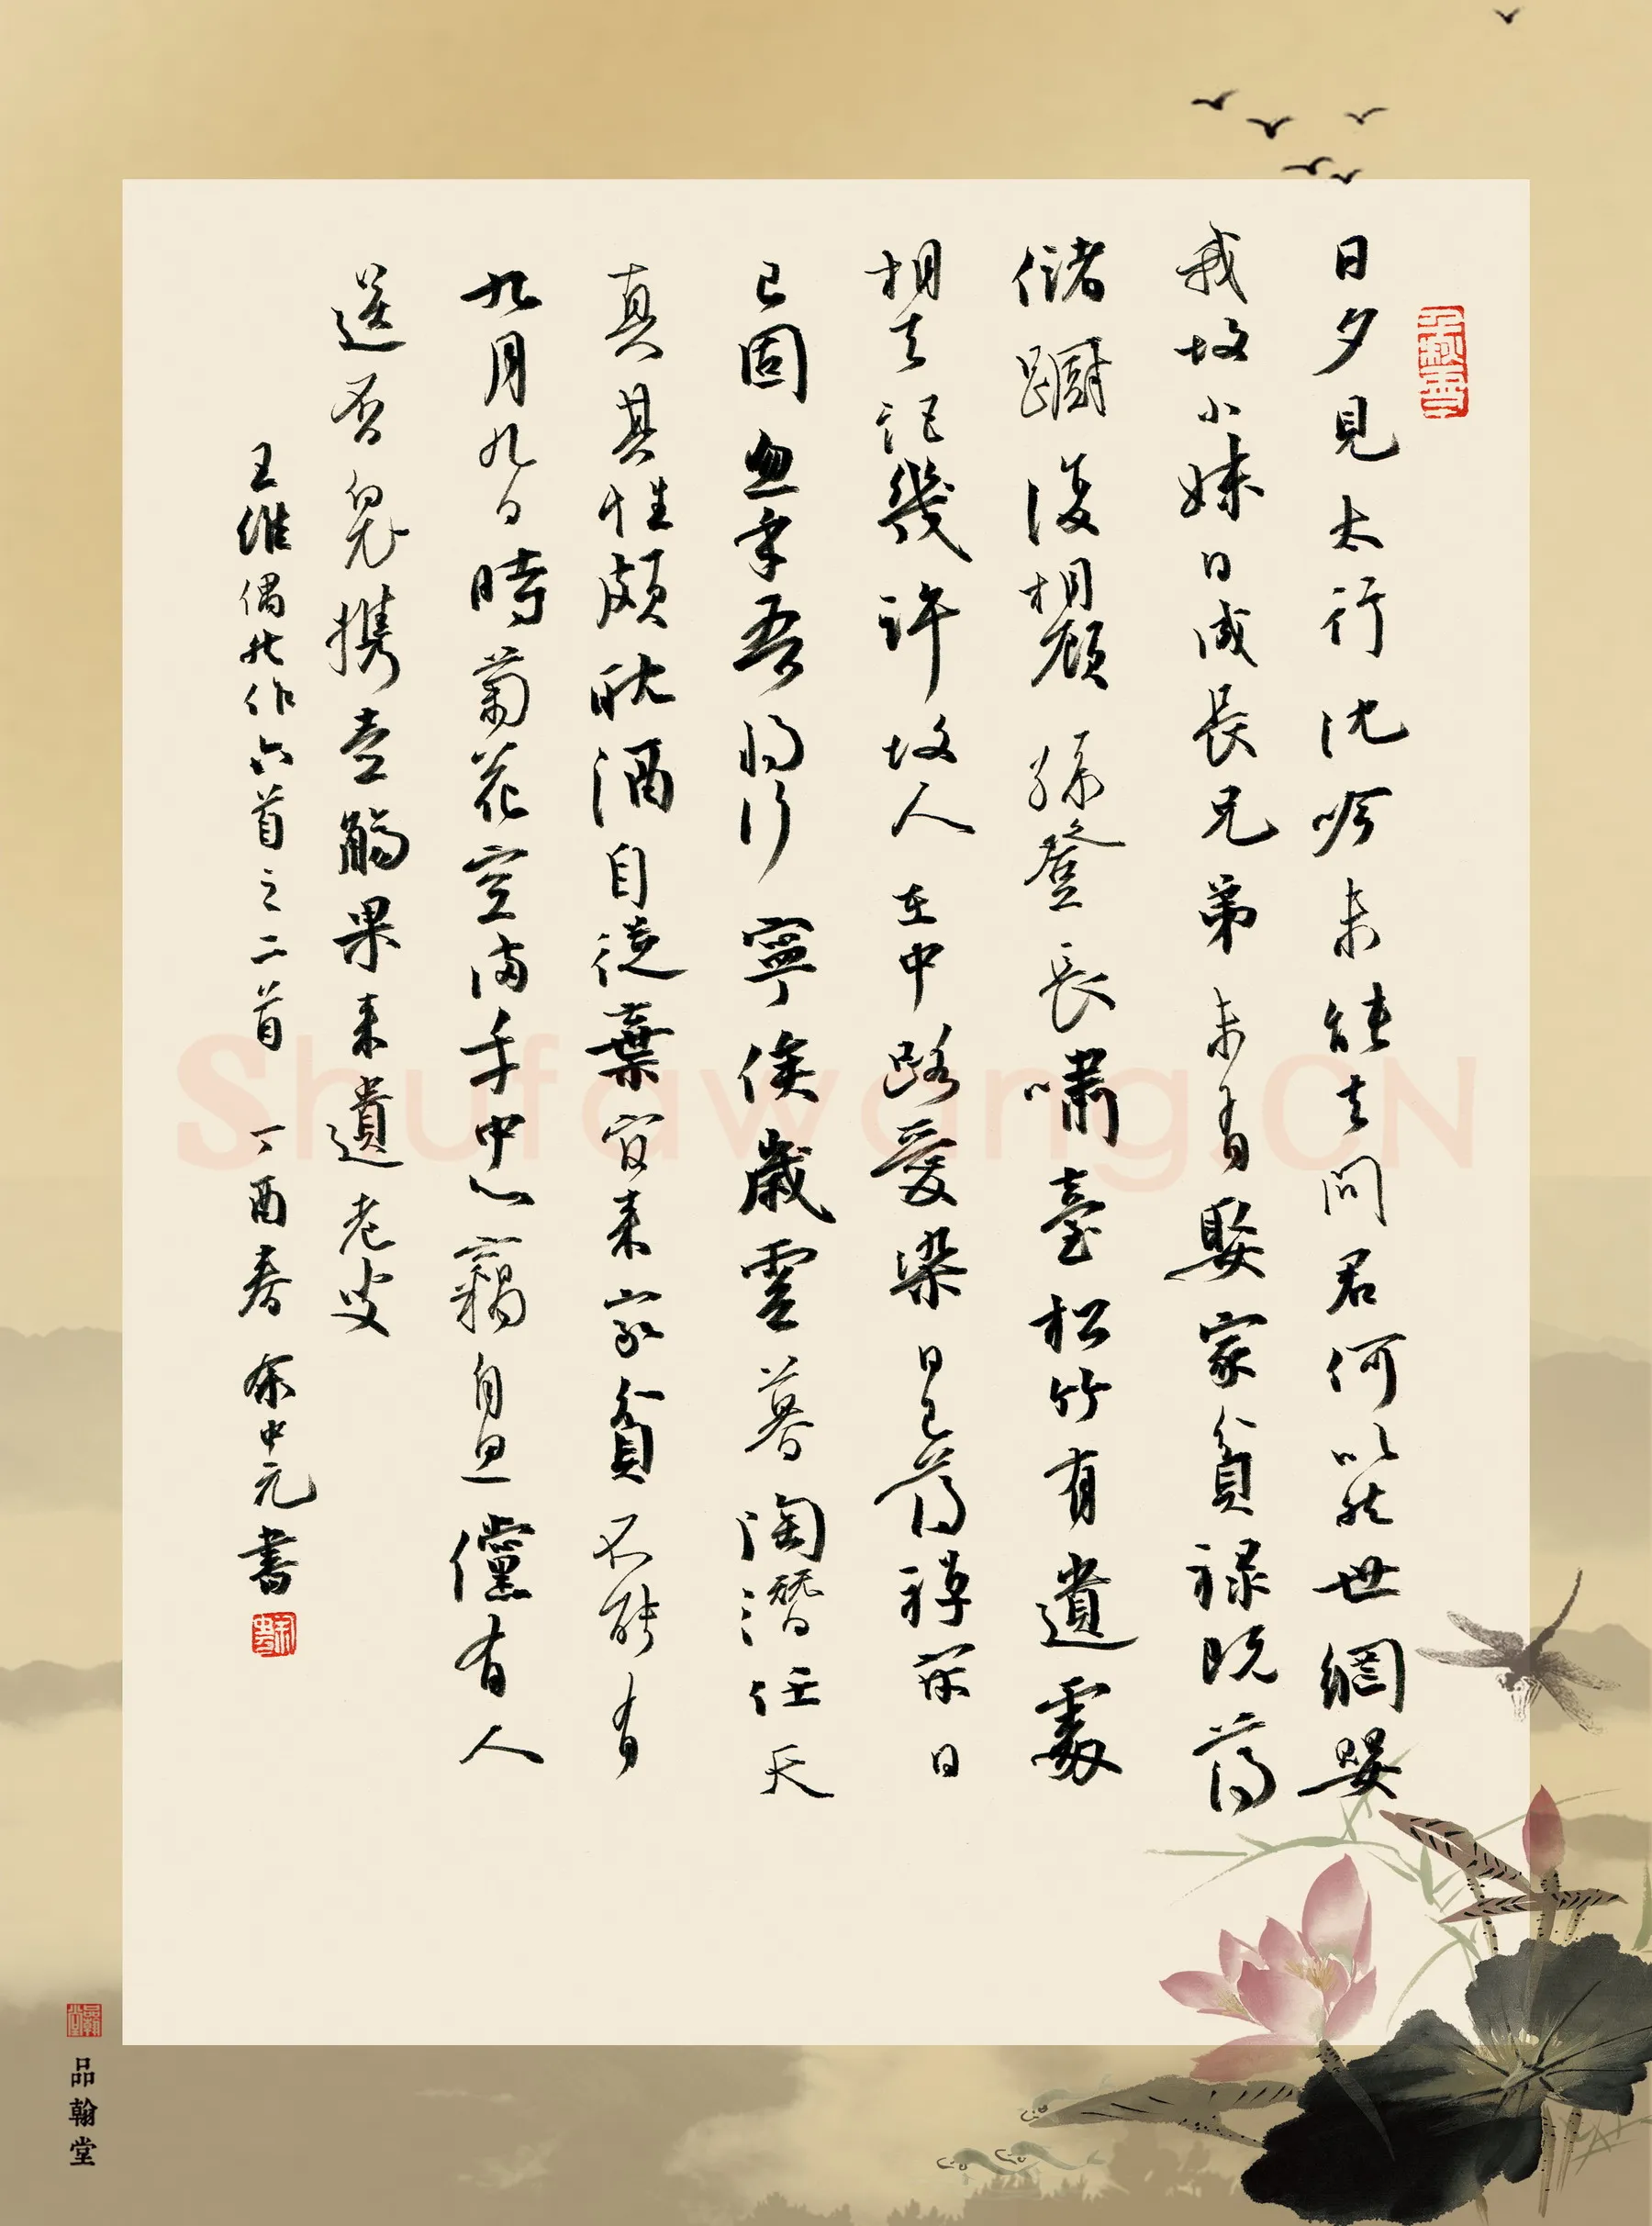 日夕見太行沈吟未能去問君何以然世網嬰
我故小妹日成長兄弟未有娶家貧祿既薄
儲躕復相顧孫登長嘯臺松竹有遺處
相去詎幾許故人在中路愛染日已薄禪寂日
已固忽乎吾將行寧俟歲雲暮陶潛任天
真其性頗耽酒自從棄官來家貧不能有
九月九日時菊花空滿手中心竊自思儻有人
送否白衣携壺觴果来遺老叟
王維偶然作六首之二首 丁酉春 余中元書
品翰堂
Shufawang.CN